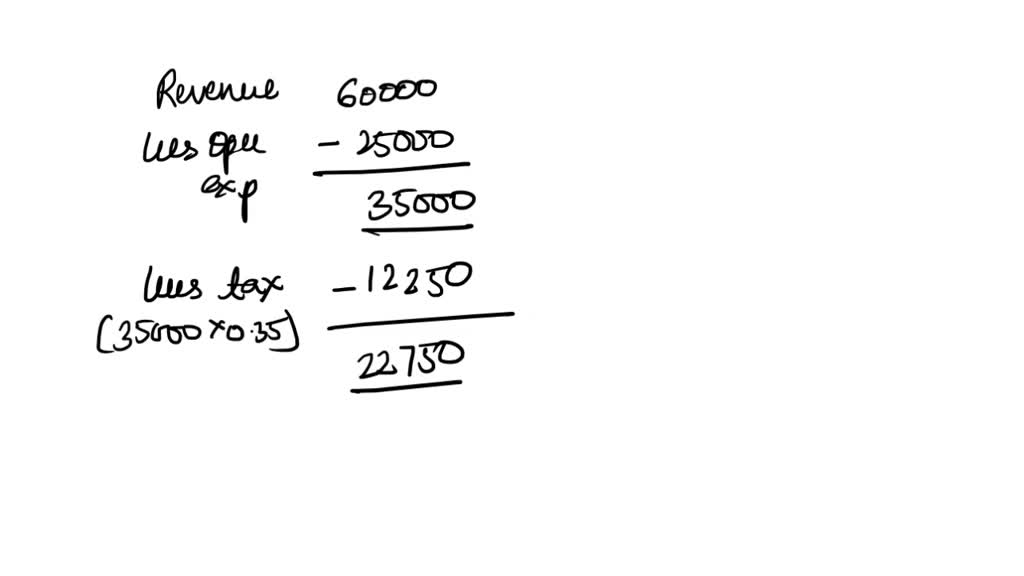 Revenue 60000
less ope - 25000
exp
35000
less tax - 12250
(35000 x 0.35)
22750